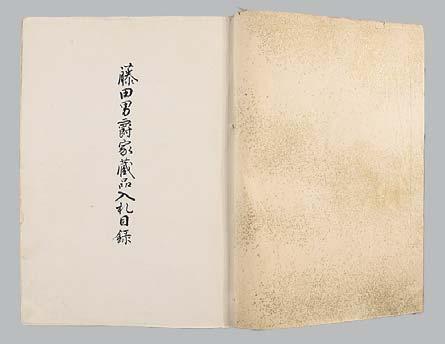 藤田男爵家蔵品入札目録